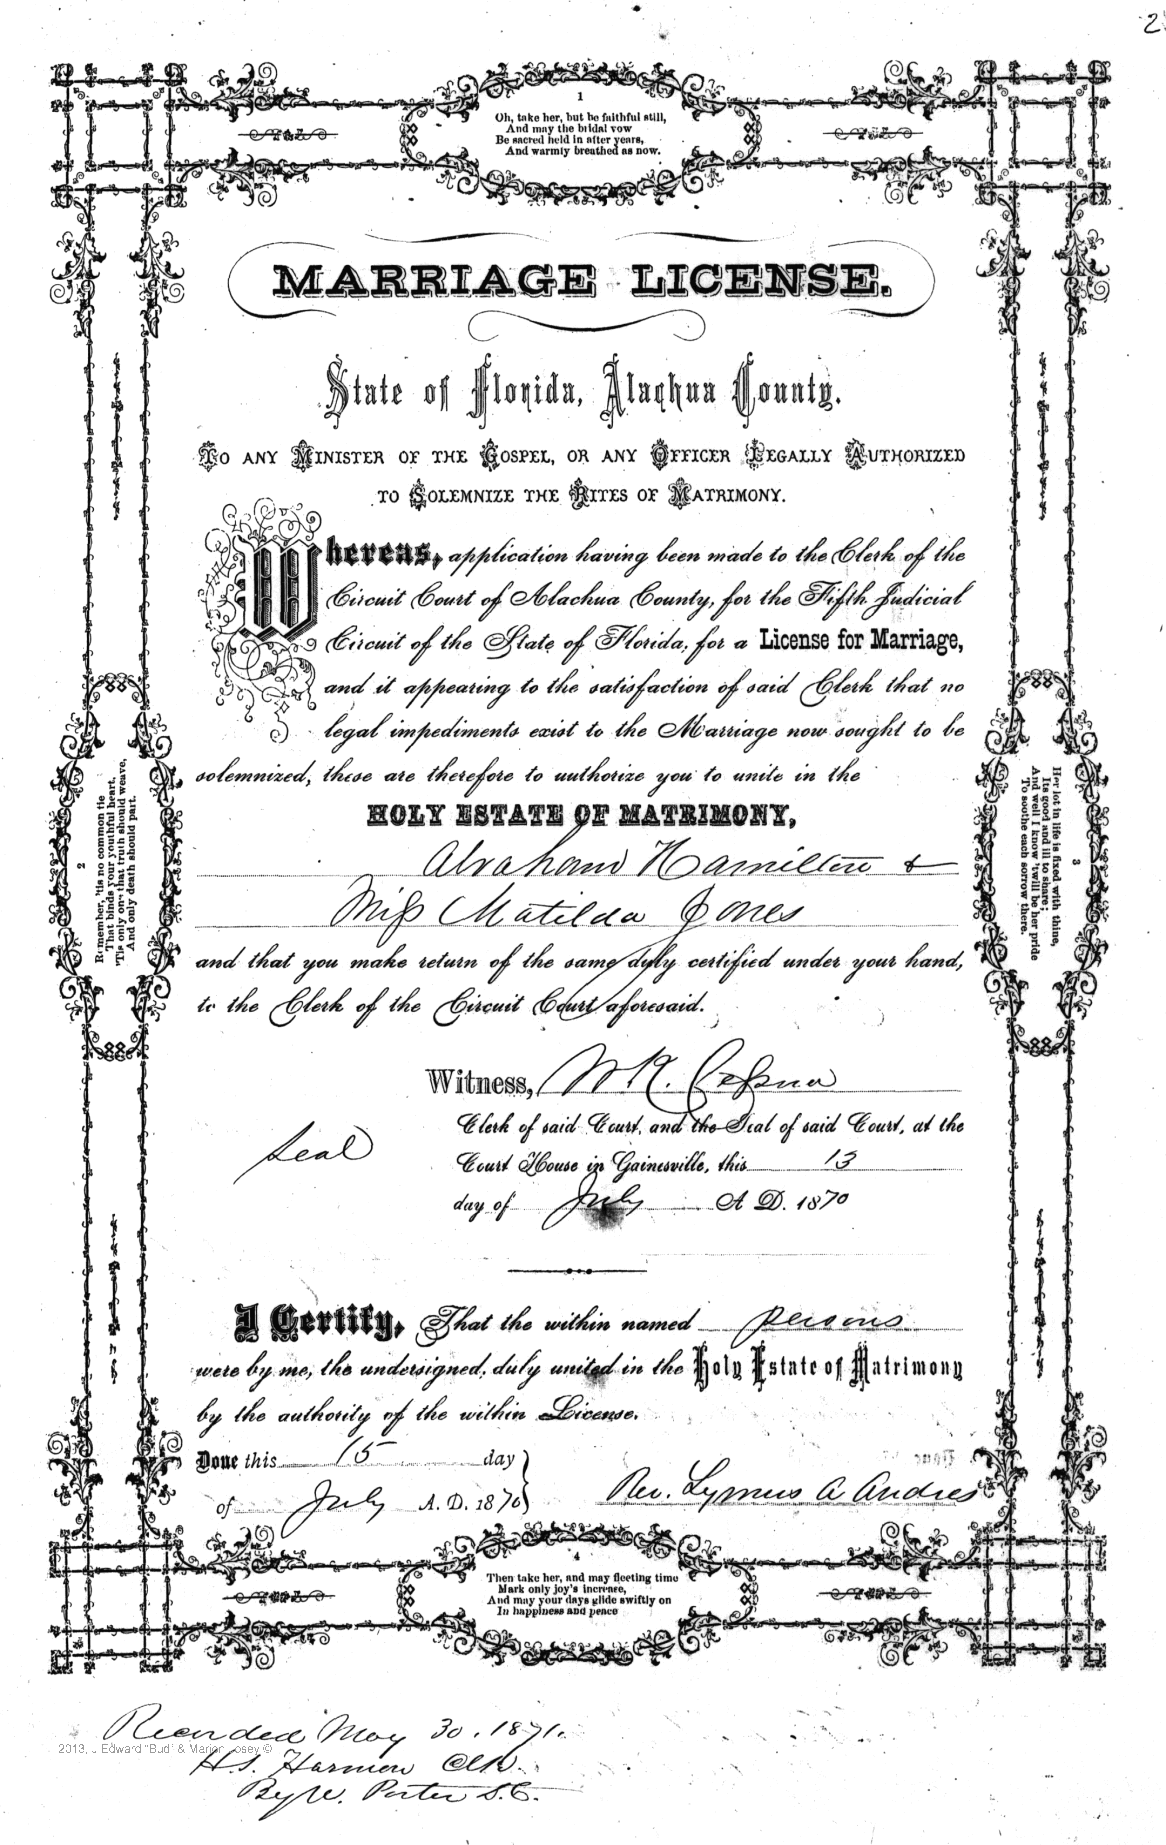 2
1
Oh, take her, but be faithful still,
And may the bridal vow
Be sacred held in after years,
And warmly breathed as now.
MARRIAGE LICENSE.
State of Florida, Alachua County.
To any Minister of the Gospel, or any Officer Legally Authorized
to Solemnize the Rites of Matrimony.
Whereas, application having been made to the Clerk of the
Circuit Court of Alachua County, for the Fifth Judicial
Circuit of the State of Florida, for a License for Marriage,
and it appearing to the satisfaction of said Clerk that no
legal impediments exist to the Marriage now sought to be
solemnized, these are therefore to authorize you to unite in the
HOLY ESTATE OF MATRIMONY,
Abraham Hamilton &
Miss Matilda Jones
and that you make return of the same duly certified under your hand,
to the Clerk of the Circuit Court aforesaid.
2
Remember, 'tis no common tie
That binds your youthful heart,
'Tis only one that truth should weave,
And only death should part.
3
Her lot in life is fixed with thine,
Its good and ill to share;
And well I know 'twill be her pride
To soothe each sorrow there.
Witness, W K. Cessna
Clerk of said Court, and the Seal of said Court, at the
Seal
Court House in Gainesville, this 13
day of July A D. 1870
I Certify, That the within named persons
were by me, the undersigned, duly united in the Holy Estate of Matrimony
by the authority of the within License.
Done this 15 day
of July A. D. 1870
Rev. Lymus A Andres
4
Then take her, and may fleeting time
Mark only joy's increase,
And may your days glide swiftly on
In happiness and peace
Recorded May 30. 1871.
2013, J Edward "Bud" & Marion Josey ©
H.S. Harmon Clk.
By W. Porter D.C.